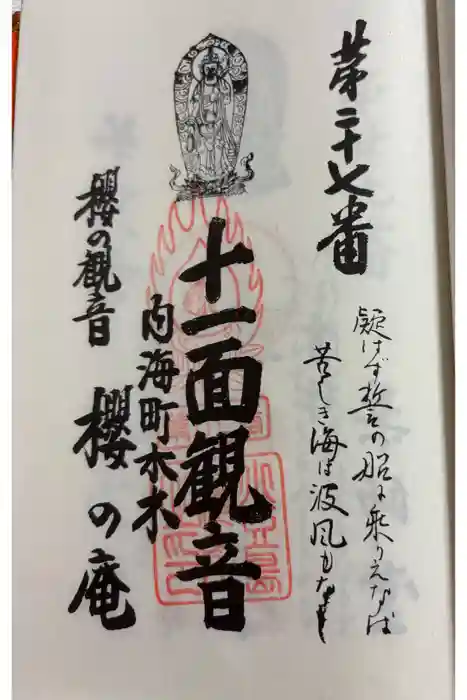 第二十七番
疑はず誓の船に乗りえなば
苦しき海は波風もなし
十一面観音
内海町木
櫻の観音
櫻の庵